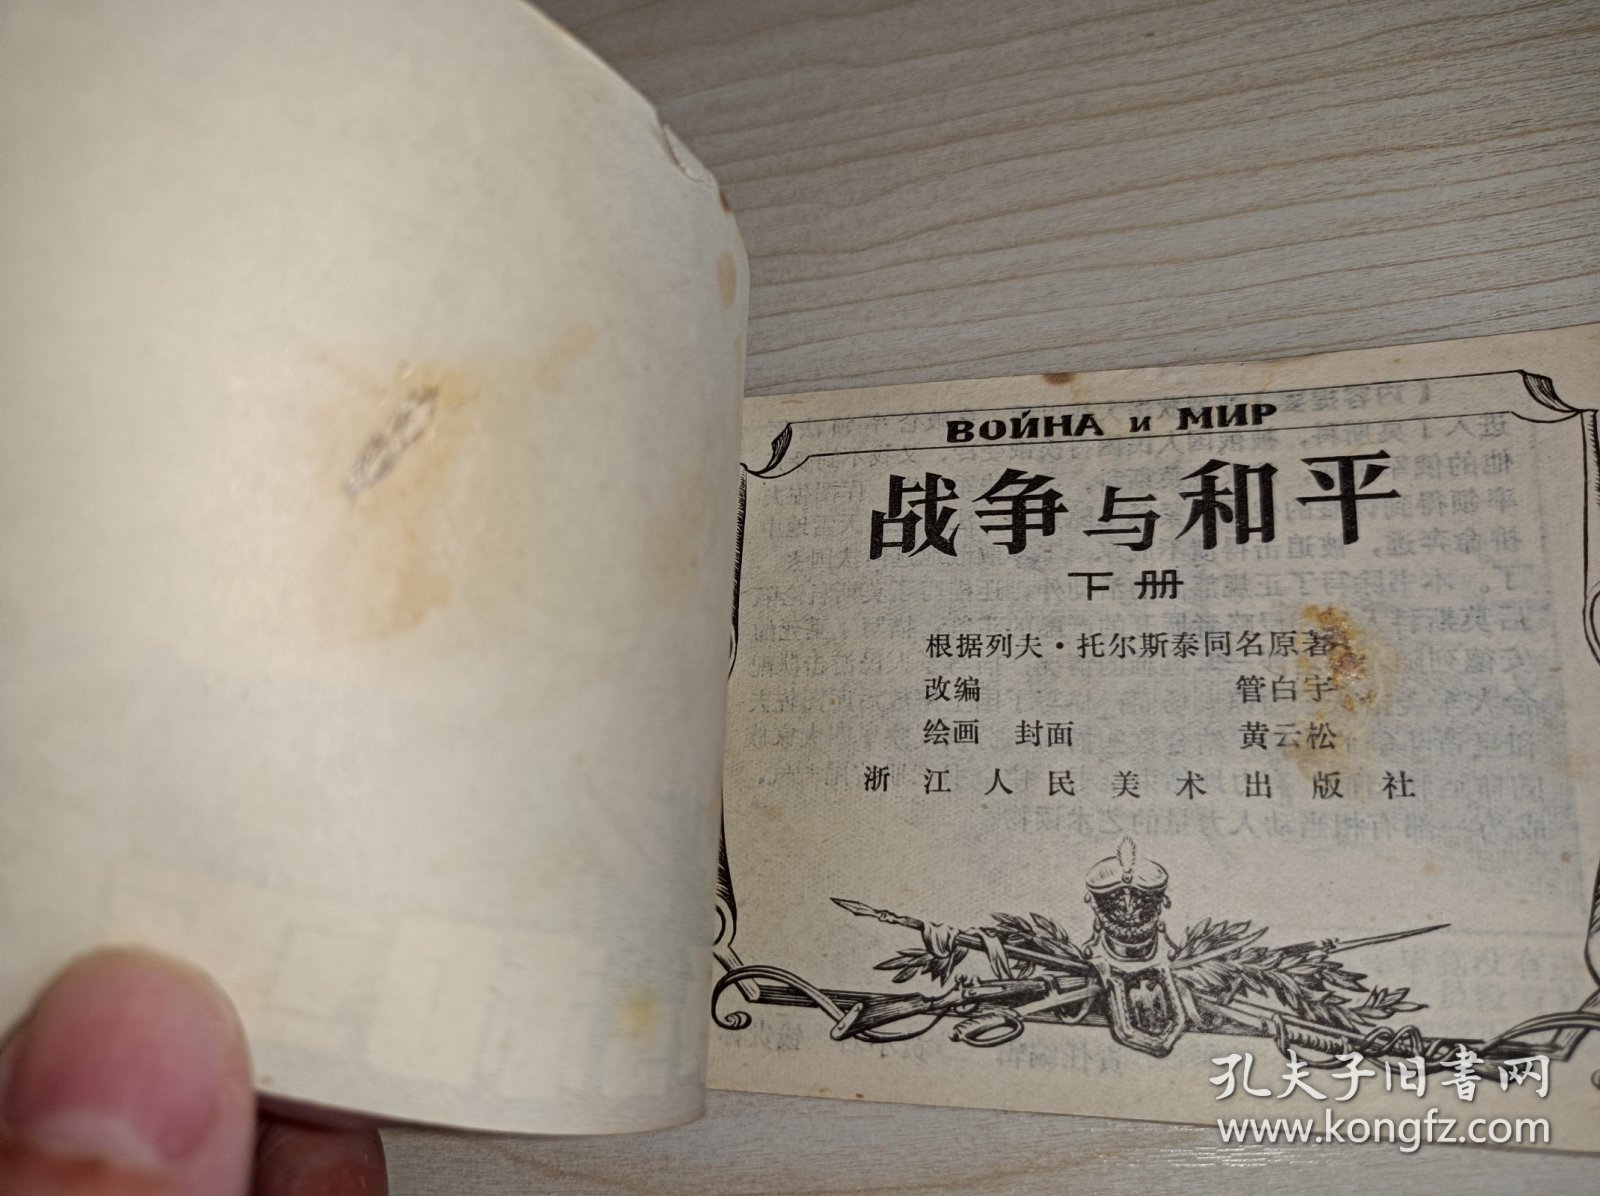 ВОЙНА и МИР
战争与和平
下册
根据列夫·托尔斯泰同名原著
改编 管白宇
绘画 封面 黄云松
浙江人民美术出版社
孔夫子旧书网
www.kongfz.com